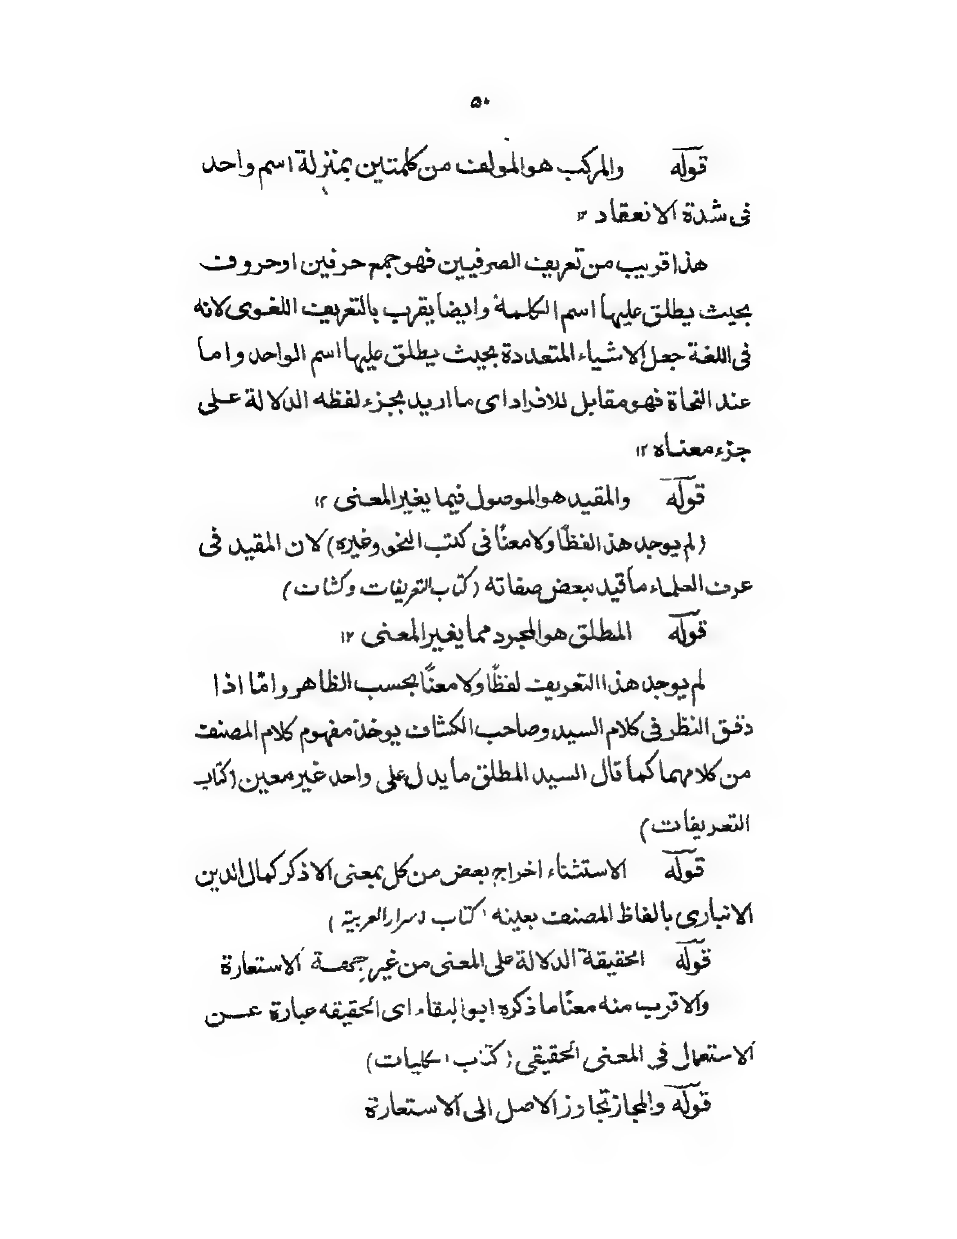 ۵۰
قوله والمركب هو المولف من كلمتين بمنزلة اسم واحد
فى شدة الانعقاد ۱۲
هذا قريب من تعريف الصرفيين فهو جمع حرفين او حروف
بحيث يطلق عليها اسم الكلمة وايضا يقرب بالتعريف اللغوى لانه
فى اللغة جعل الاشياء المتعددة بحيث يطلق عليها اسم الواحد واما
عند النحاة فهو مقابل للافراد اى ما اريد بجزء لفظه الدلالة على
جزء معناه ۱۲
قوله والمقيد هو الموصول فيما يغير المعنى ۱۲
(لم يوجد هذ الفظًا ولا معنًا فى كتب النحو وغيره) لان المقيد فى
عرف العلماء ما قيد ببعض صفاته (كتاب التعريفات وكشات)
قوله المطلق هو المجرد مما يغير المعنى ۱۲
لم يوجد هذا التعريف لفظًا ولا معنًا بحسب الظاهر وامّا اذا
دقق النظر فى كلام السيد وصاحب الكشات يوخذ مفهوم كلام المصنف
من كلامهما كما قال السيد المطلق ما يدل على واحد غير معين (كتاب
التعريفات)
قوله الاستثناء اخراج بعض من كل بمعنى الا ذكر كمال الدين
الانبارى بالفاظ المصنف بعينه (كتاب اسرار العربية)
قوله الحقيقة الدلالة على المعنى من غير جهة الاستعارة
والاقرب منه معنًا ما ذكره ابو البقاء اى الحقيقه عبارة عن
الاستعمال فى المعنى الحقيقى (كتاب الكليات)
قوله والمجاز تجاوز الاصل الى الاستعارة